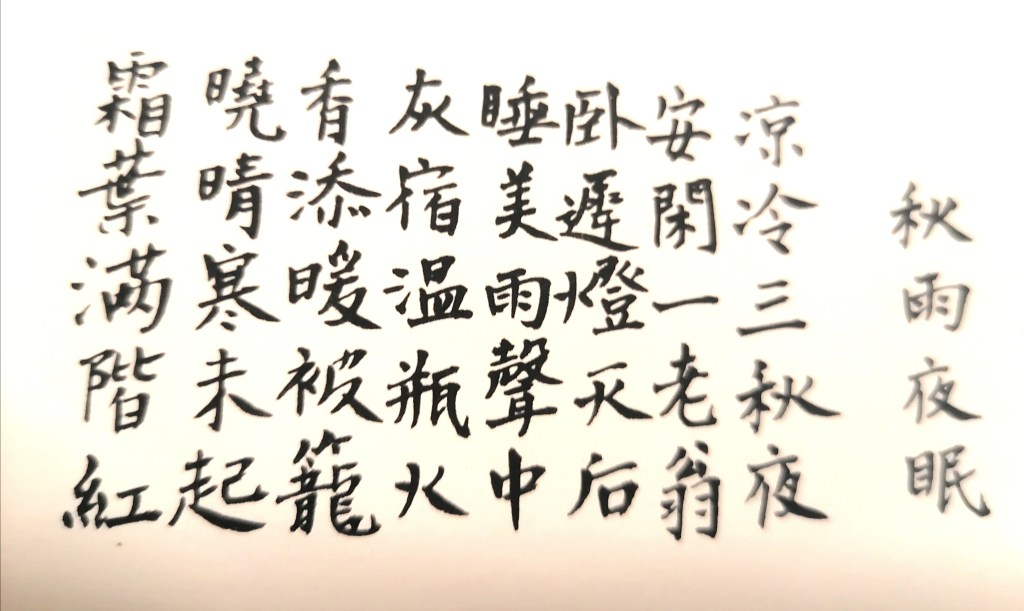 秋雨夜眠
凉冷三秋夜
安閑一老翁
卧遲燈灭后
睡美雨聲中
灰宿温瓶火
香添暖被籠
曉晴寒未起
霜葉满階紅